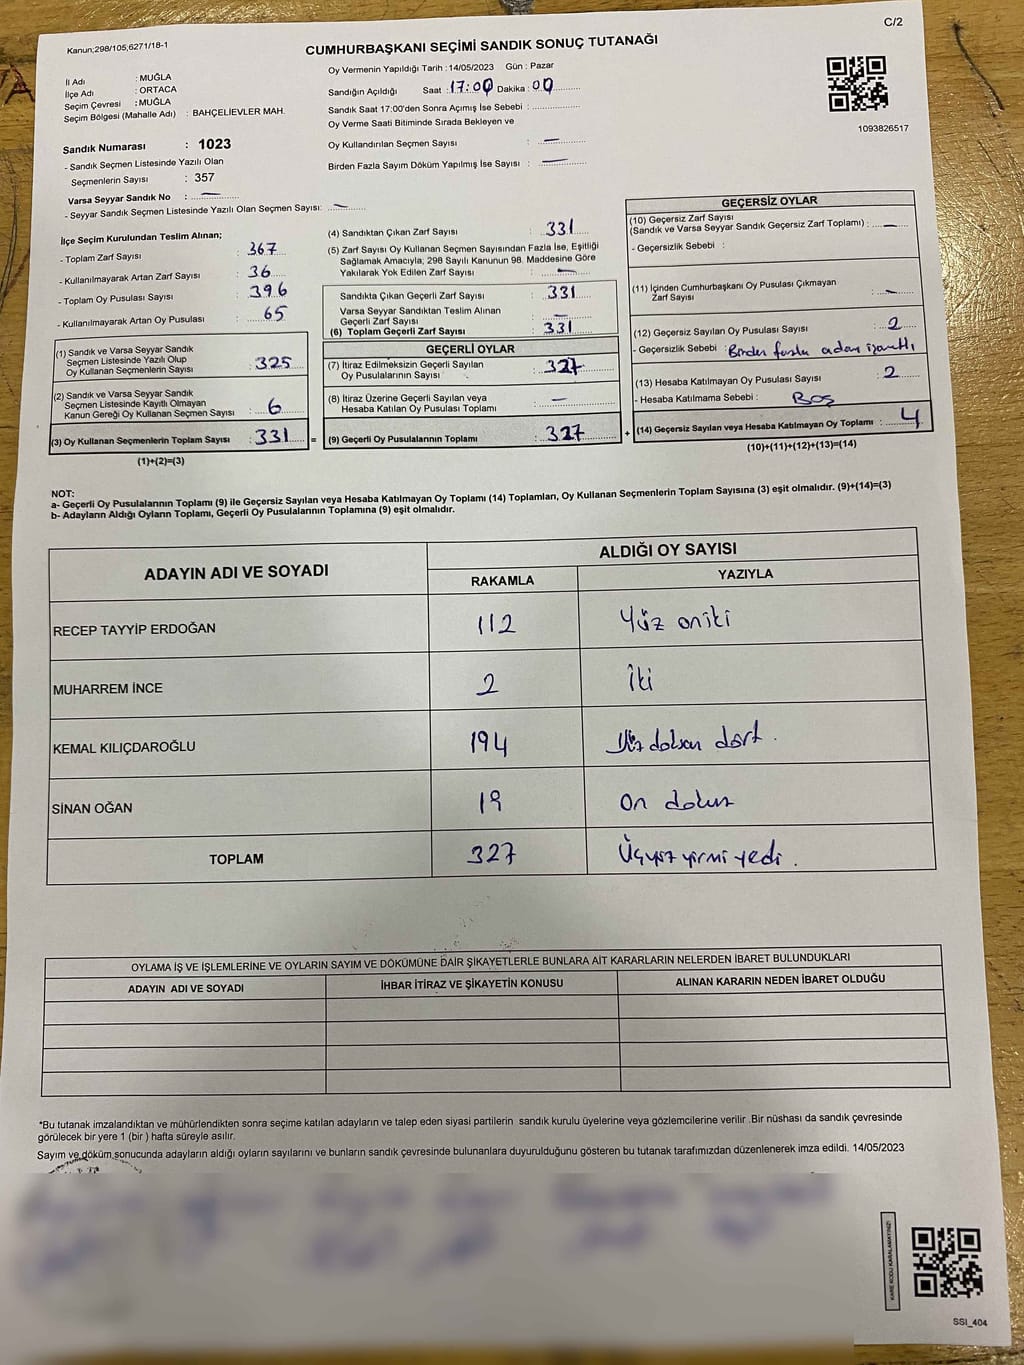 C/2
Kanun;298/105,6271/18-1
CUMHURBAŞKANI SEÇİMİ SANDIK SONUÇ TUTANAĞI
İl Adı : MUĞLA
İlçe Adı : ORTACA
Seçim Çevresi : MUĞLA
Seçim Bölgesi (Mahalle Adı) : BAHÇELİEVLER MAH.
Oy Vermenin Yapıldığı Tarih :14/05/2023 Gün : Pazar
Sandığın Açıldığı Saat : 17:00 Dakika : 00
Sandık Saat 17:00'den Sonra Açımış İse Sebebi :
Oy Verme Saati Bitiminde Sırada Bekleyen ve
Oy Kullandırılan Seçmen Sayısı : —
Birden Fazla Sayım Döküm Yapılmış İse Sayısı : —
1093826517
Sandık Numarası : 1023
- Sandık Seçmen Listesinde Yazılı Olan
Seçmenlerin Sayısı : 357
Varsa Seyyar Sandık No : —
- Seyyar Sandık Seçmen Listesinde Yazılı Olan Seçmen Sayısı: —
İlçe Seçim Kurulundan Teslim Alınan;
- Toplam Zarf Sayısı : 367
- Kullanılmayarak Artan Zarf Sayısı : 36
- Toplam Oy Pusulası Sayısı : 396
- Kullanılmayarak Artan Oy Pusulası : 65
(1) Sandık ve Varsa Seyyar Sandık
Seçmen Listesinde Yazılı Olup
Oy Kullanan Seçmenlerin Sayısı : 325
(2) Sandık ve Varsa Seyyar Sandık
Seçmen Listesinde Kayıtlı Olmayan
Kanun Gereği Oy Kullanan Seçmen Sayısı : 6
(3) Oy Kullanan Seçmenlerin Toplam Sayısı : 331 =
(1)+(2)=(3)
(4) Sandıktan Çıkan Zarf Sayısı : 331
(5) Zarf Sayısı Oy Kullanan Seçmen Sayısından Fazla İse, Eşitliği
Sağlamak Amacıyla; 298 Sayılı Kanunun 98. Maddesine Göre
Yakılarak Yok Edilen Zarf Sayısı : —
Sandıkta Çıkan Geçerli Zarf Sayısı : 331
Varsa Seyyar Sandıktan Teslim Alınan
Geçerli Zarf Sayısı : —
(6) Toplam Geçerli Zarf Sayısı : 331
GEÇERLİ OYLAR
(7) İtiraz Edilmeksizin Geçerli Sayılan
Oy Pusulalarının Sayısı : 327
(8) İtiraz Üzerine Geçerli Sayılan veya
Hesaba Katılan Oy Pusulası Toplamı : —
(9) Geçerli Oy Pusulalarının Toplamı : 327 +
GEÇERSİZ OYLAR
(10) Geçersiz Zarf Sayısı
(Sandık ve Varsa Seyyar Sandık Geçersiz Zarf Toplamı) : —
- Geçersizlik Sebebi :
(11) İçinden Cumhurbaşkanı Oy Pusulası Çıkmayan
Zarf Sayısı : —
(12) Geçersiz Sayılan Oy Pusulası Sayısı : 2
- Geçersizlik Sebebi : Birden fazla adam işaretli
(13) Hesaba Katılmayan Oy Pusulası Sayısı : 2
- Hesaba Katılmama Sebebi : Boş
(14) Geçersiz Sayılan veya Hesaba Katılmayan Oy Toplamı : 4
(10)+(11)+(12)+(13)=(14)
NOT:
a- Geçerli Oy Pusulalarının Toplamı (9) ile Geçersiz Sayılan veya Hesaba Katılmayan Oy Toplamı (14) Toplamları, Oy Kullanan Seçmenlerin Toplam Sayısına (3) eşit olmalıdır. (9)+(14)=(3)
b- Adayların Aldığı Oyların Toplamı, Geçerli Oy Pusulalarının Toplamına (9) eşit olmalıdır.
ADAYIN ADI VE SOYADI ALDIĞI OY SAYISI
RAKAMLA YAZIYLA
RECEP TAYYİP ERDOĞAN 112 Yüz oniki
MUHARREM İNCE 2 İki
KEMAL KILIÇDAROĞLU 194 Yüz doksan dört.
SİNAN OĞAN 19 On dokuz
TOPLAM 327 Üçyüz yirmi yedi.
OYLAMA İŞ VE İŞLEMLERİNE VE OYLARIN SAYIM VE DÖKÜMÜNE DAİR ŞİKAYETLERLE BUNLARA AİT KARARLARIN NELERDEN İBARET BULUNDUKLARI
ADAYIN ADI VE SOYADI İHBAR İTİRAZ VE ŞİKAYETİN KONUSU ALINAN KARARIN NEDEN İBARET OLDUĞU
*Bu tutanak imzalandıktan ve mühürlendikten sonra seçime katılan adayların ve talep eden siyasi partilerin sandık kurulu üyelerine veya gözlemcilerine verilir .Bir nüshası da sandık çevresinde
görülecek bir yere 1 (bir ) hafta süreyle asılır.
Sayım ve döküm sonucunda adayların aldığı oyların sayılarını ve bunların sandık çevresinde bulunanlara duyurulduğunu gösteren bu tutanak tarafımızdan düzenlenerek imza edildi. 14/05/2023
KARE KODU KARALAMAYINIZ!
SSI_404